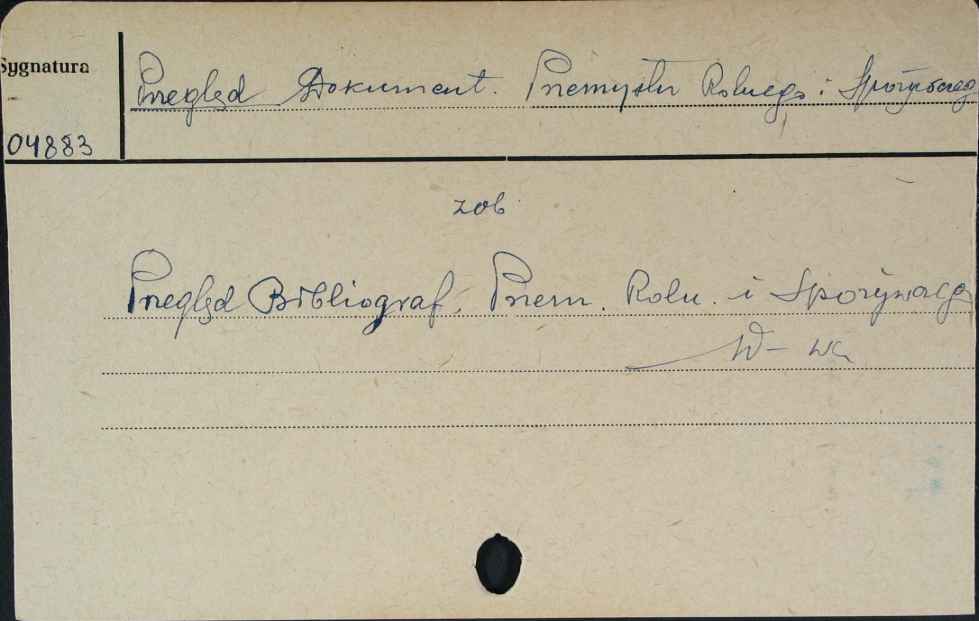 Sygnatura
Przegląd Dokument. Przemysłu Rolnego i Spożywczego
04883
zob
Przegląd Bibliograf. Przem. Roln. i Spożywczego
W-wa